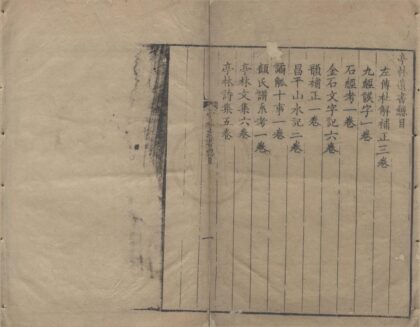 亭林遺書總目
左傳杜解補正三卷
九經誤字一卷
石經考一卷
金石文字記六卷
韻補正一卷
昌平山水記二卷
譎觚十事一卷
顧氏譜系考一卷
亭林文集六卷
亭林詩集五卷
一